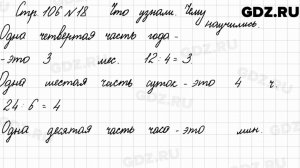 GDZ.RU
Стр. 106 №18. Что узнали. Чему научились
Одна четвертая часть года -
- это 3 мес. 12 : 4 = 3
Одна шестая часть суток - это 4 ч.
24 : 6 = 4
Одна десятая часть часа - это мин.
GDZ.RU